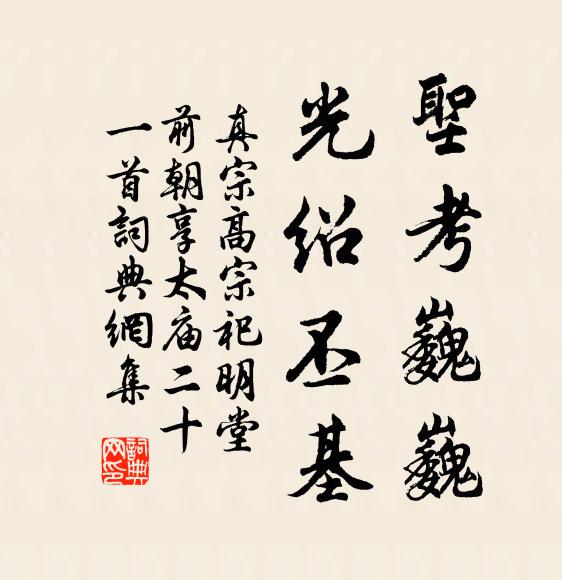 聖考巍巍
光绍丕基
真宗高宗祀明堂
前朝享太庙二十
一首詞典網集
詞典
网印